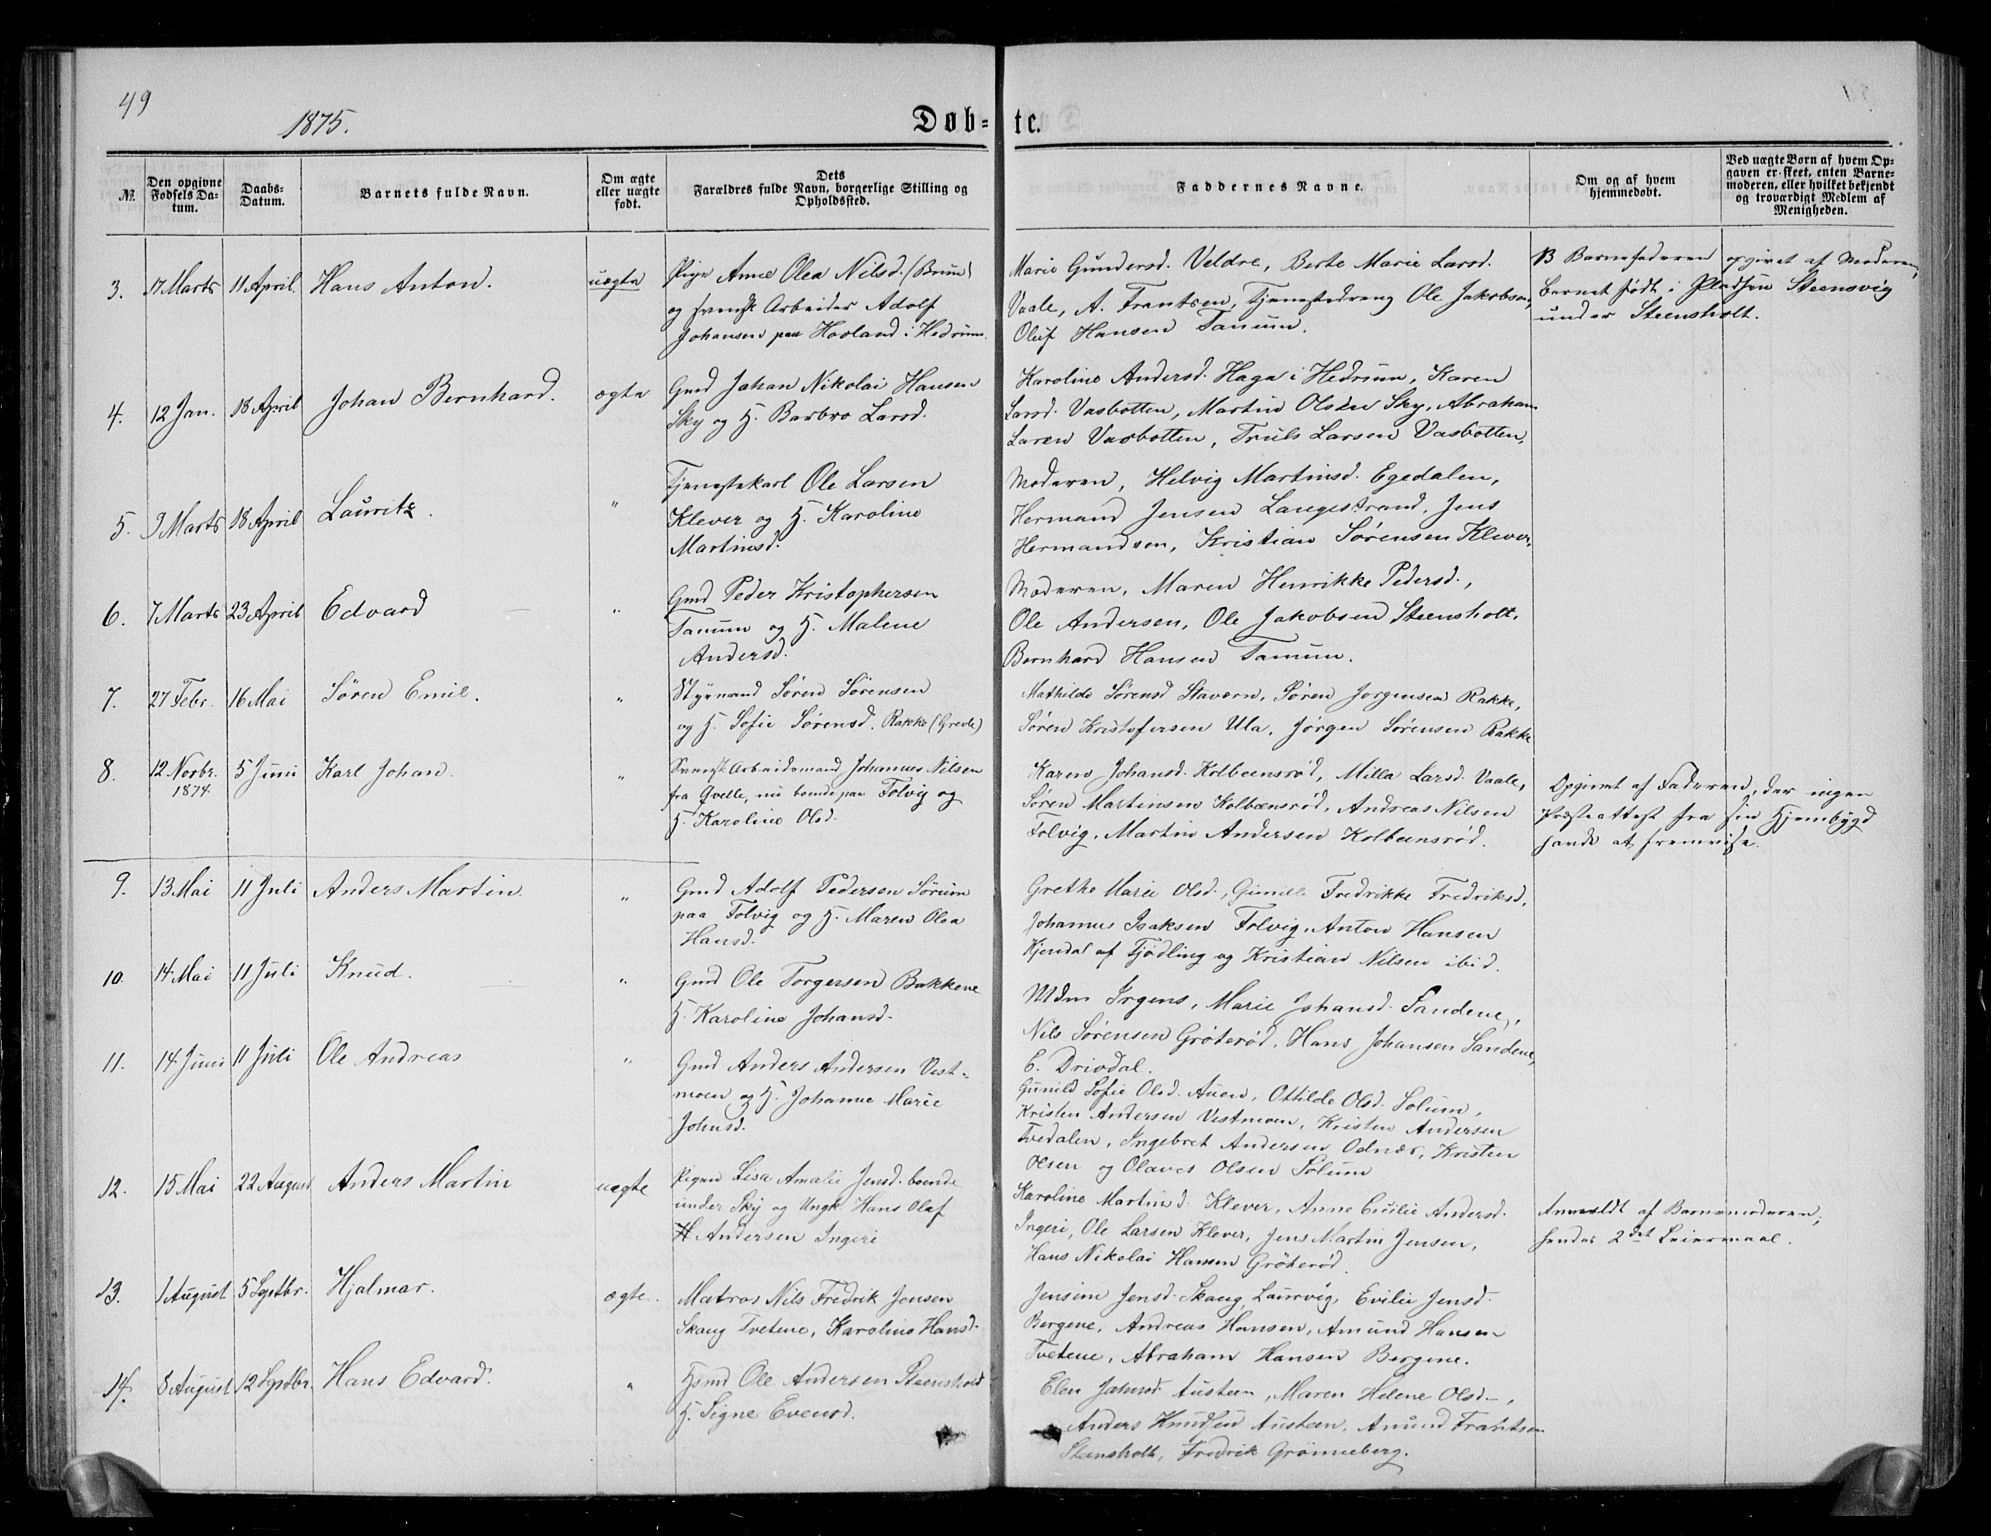 49
1875.
Døb-
te.
№.
Den opgivne
Fødsels Da-
tum.
Daabs-
Datum.
Barnets fulde Navn.
Om ægte
eller uægte
født.
Dets
Farældres fulde Navn, borgerlige Stilling og
Opholdssted.
Faddernes Navne.
Om og af hvem
hjemmedøbt.
Ved uægte Børn af hvem Op-
gaven er skeet, enten Barne-
moderen, eller hvilket bekjendt
og troværdigt Medlem af
Menigheden.
3. 17 Marts 11 April. Hans Anton. uægte
Pige Anne Olea Nilsd. (Brun)
og svensk Arbeider Adolf
Johansen paa Hovland i Hedrum.
Marie Gundersd. Veldre, Berte Marie Larsd.
Vaale, A. Frantsen, Tjenestedreng Ole Jakobsen,
Oluf Hansen Tanum.
B Barnefaderen opgivet af Moderen,
Barnet født i Pladsen Steensvig
under Steensholt.
4. 12 Jan. 18 April Johan Bernhard. ægte
Gmd Johan Nikolai Hansen
Sky og H. Barbro Larsd.
Karoline Andersd. Haga i Hedrum, Karen
Larsd. Vasbotten, Martin Olsen Sky, Abraham
Laren Vasbotten, Truls Larsen Vasbotten,
5. 9 Marts 18 April Lauritz. "
Tjenestekarl Ole Larsen
Klever og H. Karoline
Martinsd.
Moderen, Helvig Martinsd. Egedalen,
Hermand Jensen Langestrand, Jens
Hermandsen, Kristian Sørensen Klever,
6. 7 Marts 23 April Edvard "
Gmd Peder Kristophersen
Tanum og H. Malene
Andersd.
Moderen, Maren Henrikke Pedersd.,
Ole Andersen, Ole Jakobsen Steensholt,
Bernhard Hansen Tanum.
7. 27 Febr. 16 Mai Søren Emil. "
Styrmand Søren Sørensen
og H. Sofie Sørensd. Rakke (Grevle)
Mathilde Sørensd Stavern, Søren Jørgensen Rakke,
Søren Kristofersen Ula, Jørgen Sørensen Rakke
8. 12 Novbr. 5 Juni Karl Johan. "
1874.
Svensk Arbeidsmand Johannes Nilsen
fra Gvelle, nu boende paa Tolvig og
H. Karoline Olsd.
Karen Johansd. Kolbeensrød, Milla Larsd. Vaale,
Søren Martinsen Kolbeensrød, Andreas Nilsen
Tolvig, Martin Andersen Kolbeensrød.
Opgivet af Faderen, der ingen
Præsteattest fra sin Hjembygd
havde at fremvise.
9. 13 Mai 11 Juli Anders Martin. "
Gmd Adolf Pedersen Sørum
paa Tolvig og H. Maren Olea
Hansd.
Grethe Marie Olsd., Gunille Fredrikke Fredriksd,
Johannes Isaksen Tolvig, Anton Hansen
Hjendal af Tjødling og Kristian Nilsen ibid.
10. 14 Mai 11 Juli Knud. "
Gmd Ole Torgersen Bakkene
H. Karoline Johansd.
Mdm Irgens, Marie Johansd. Sandene,
Nils Sørensen Grøterød, Hans Johansen Sandene,
E. Drivdal.
11. 14 Juni 11 Juli Ole Andreas "
Gmd Anders Andersen Vest-
moen og H. Johanne Marie
Johnsd.
Gunild Sofie Olsd. Auen, Ottilde Olsd. Solum,
Kristen Andersen Vestmoen, Kristen Andersen
Tvedalen, Ingebret Andersen Odnæs, Kristen
Olsen og Olaves Olsen Solum
12. 15 Mai 22 August Anders Martin uægte
Pigen Lisa Amalie Jensd. boende
under Sky og Ungk. Hans Olaf
H Andersen Ingeri
Karoline Martinsd. Klever, Anne Cecilie Andersd.
Ingeri, Ole Larsen Klever, Jens Martin Jensen,
Hans Nikolai Hansen Grøterød.
Anmeldt af Barnemoderen,
hendes 2det Leiermaal.
13. 1 August 5 Septbr. Hjalmar. ægte.
Matros Nils Fredrik Jensen
Skaug Tvetene, Karoline Hansd.
Jensine Jensd. Skaug, Laurvig, Evilie Jensd.
Bergene, Andreas Hansen, Amund Hansen
Tvetene, Abraham Hansen Bergene.
14. 8 August 12 Septbr. Hans Edvard. "
Hsmd Ole Andersen Steensholt
H. Signe Evensd.
Elen Jakobsd. Austeen, Maren Helene Olsd-,
Anders Knudsen Austeen, Amund Frantsen
Steensholt, Fredrik Grønneberg.